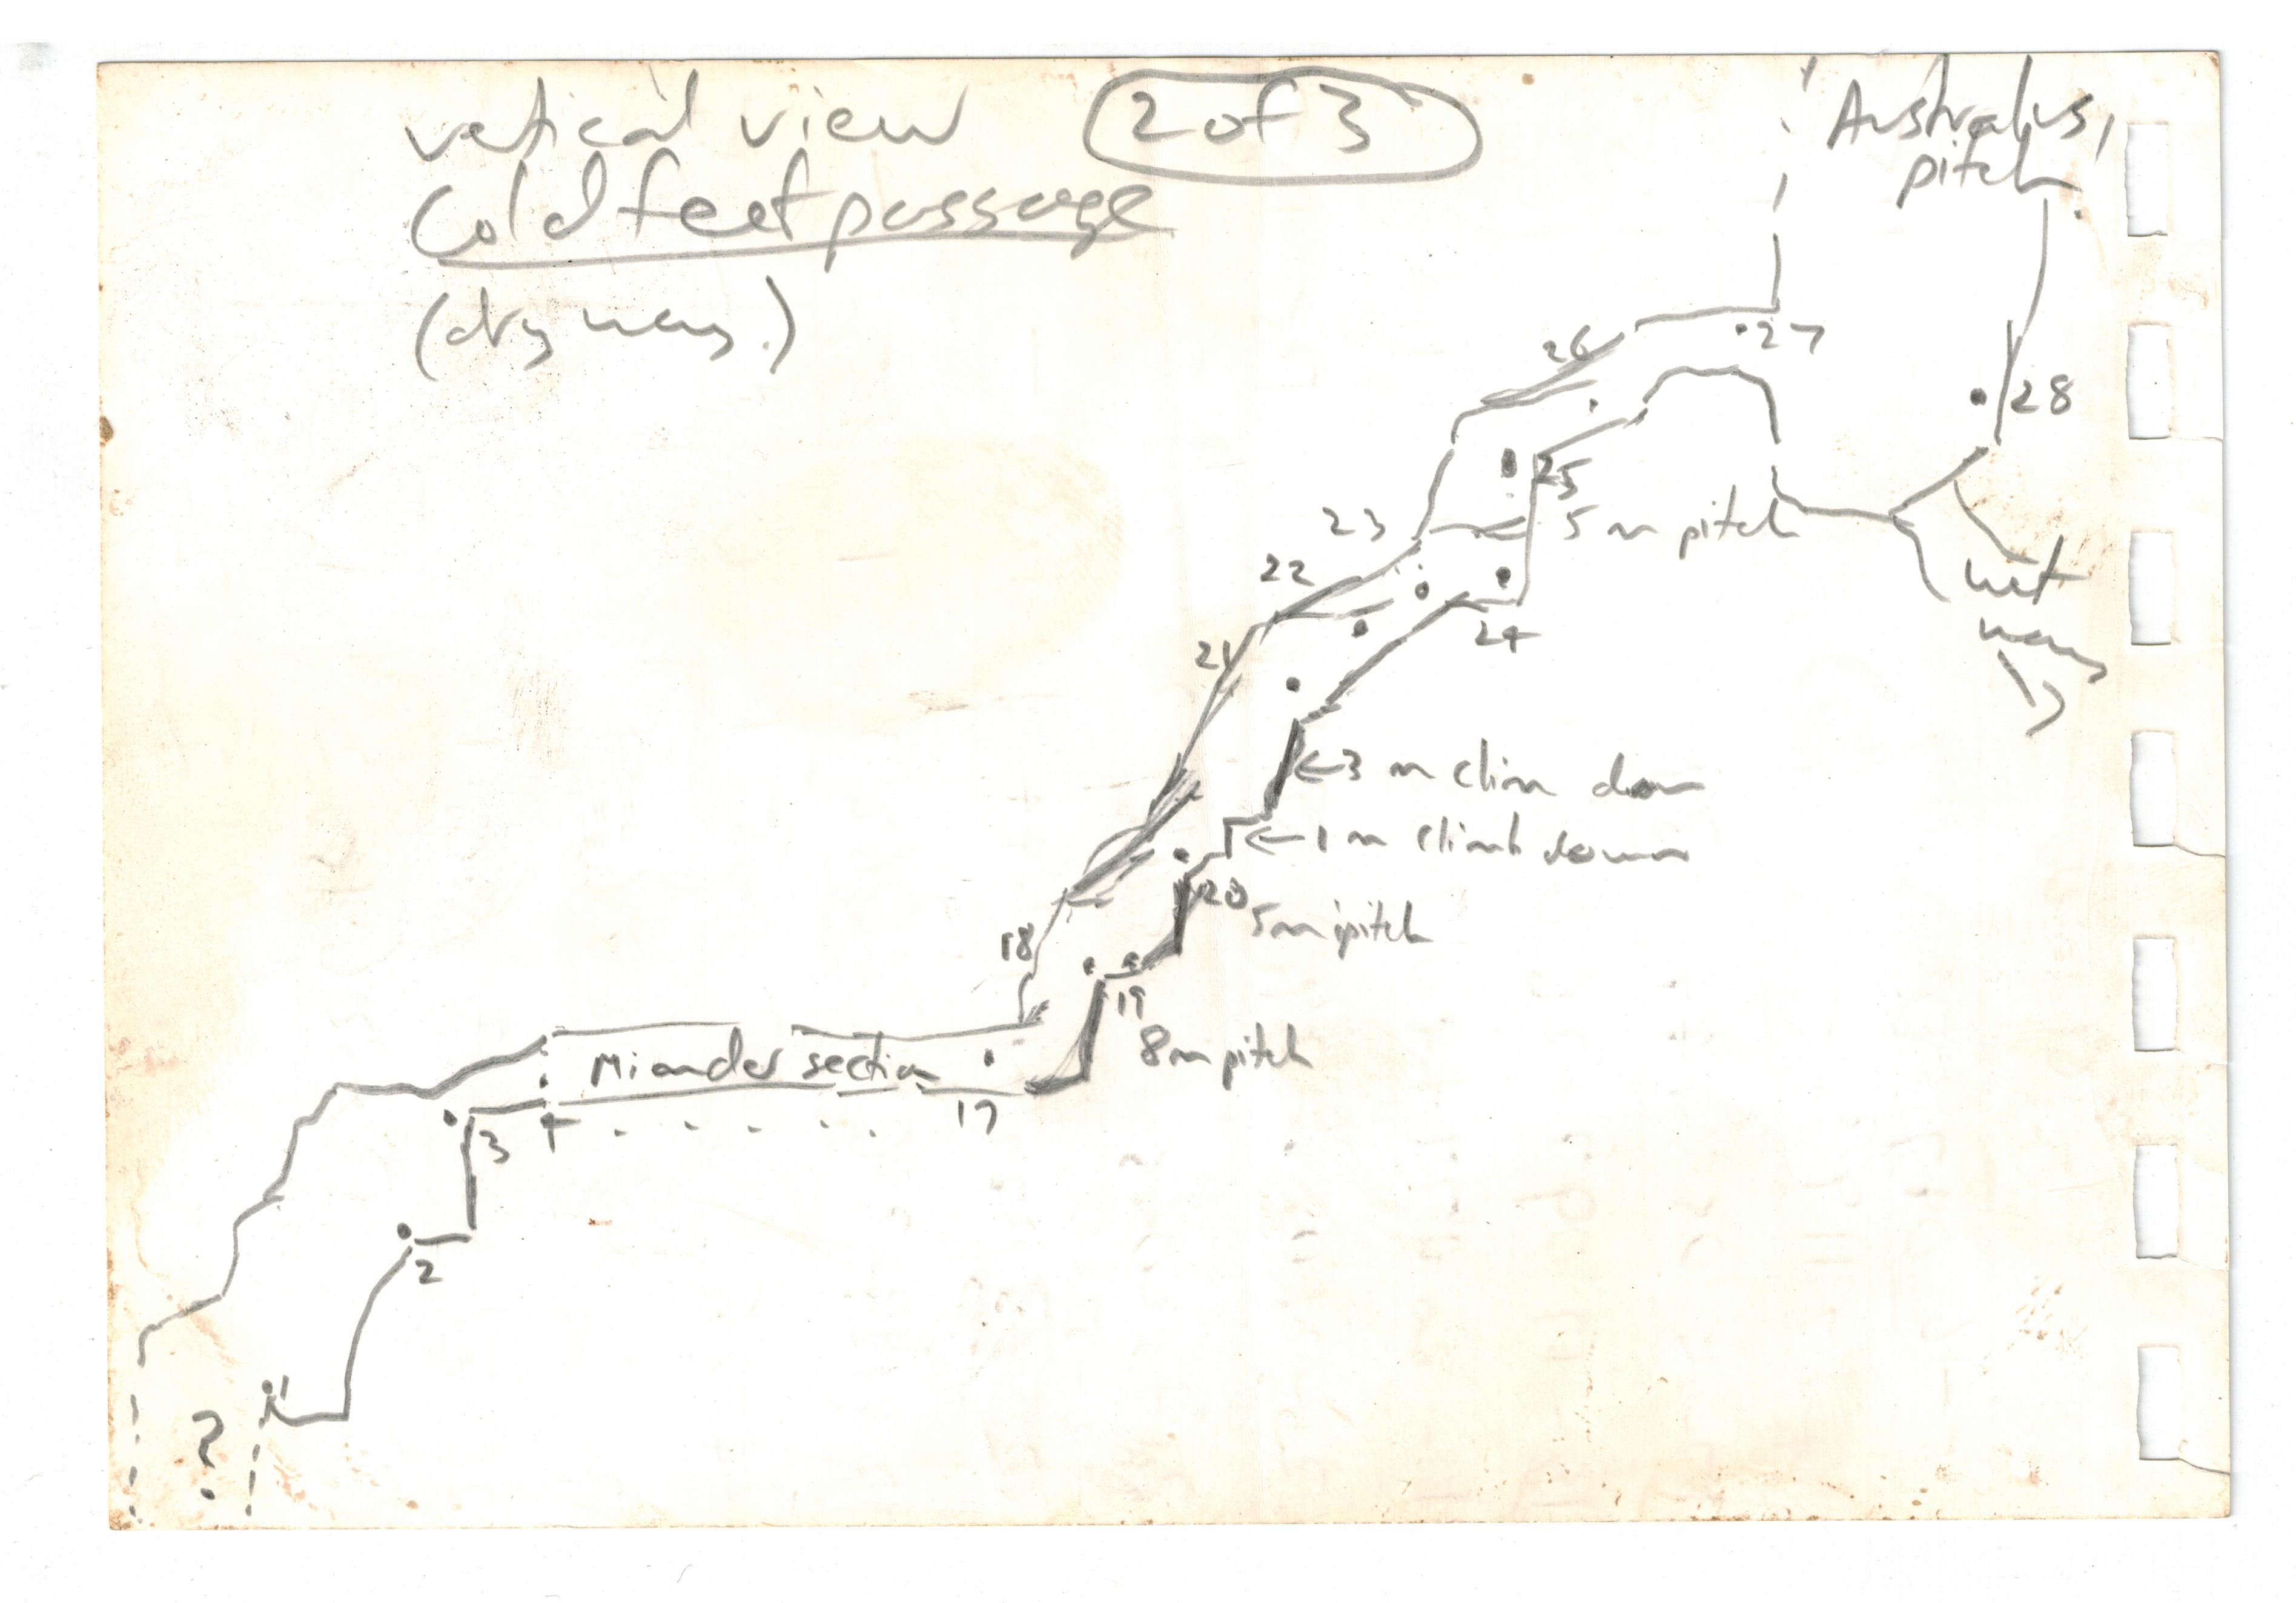 vetical view
2 of 3
Cold feet passage
(dry way.)
Australus,
pitch
26
27
28
25
5 m pitch
23
22
wet
way
24
21
←3 m clim down
←1 m climb down
20
5m pitch
18
19
8m pitch
Miander section
17
3
4 . . . . .
2
1
?